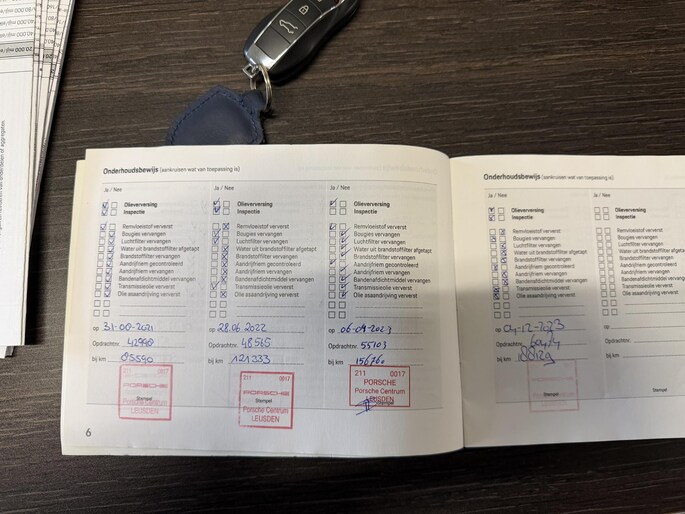 Onderhoudsbewijs (aankruisen wat van toepassing is)
Ja / Nee
Olieverversing
Inspectie
Remvloeistof ververst
Bougies vervangen
Luchtfilter vervangen
Water uit brandstoffilter afgetapt
Brandstoffilter vervangen
Aandrijfriem gecontroleerd
Aandrijfriem vervangen
Bandenafdichtmiddel vervangen
Transmissieolie ververst
Olie asaandrijving ververst
op
Opdrachtnr. 42990
bij km
211 0017
PORSCHE
Stempel
Porsche Centrum
LEUSDEN
6
Ja / Nee
Olieverversing
Inspectie
Remvloeistof ververst
Bougies vervangen
Luchtfilter vervangen
Water uit brandstoffilter afgetapt
Brandstoffilter vervangen
Aandrijfriem gecontroleerd
Aandrijfriem vervangen
Bandenafdichtmiddel vervangen
Transmissieolie ververst
Olie asaandrijving ververst
op 28.06 2022
Opdrachtnr. 48565
bij km 121333
211 0017
PORSCHE
Stempel
Porsche Centrum
LEUSDEN
Ja / Nee
Olieverversing
Inspectie
Remvloeistof ververst
Bougies vervangen
Luchtfilter vervangen
Water uit brandstoffilter afgetapt
Brandstoffilter vervangen
Aandrijfriem gecontroleerd
Aandrijfriem vervangen
Bandenafdichtmiddel vervangen
Transmissieolie ververst
Olie asaandrijving ververst
op
Opdrachtnr. 55103
bij km 156760
211 0017
PORSCHE
Porsche Centrum
LEUSDEN
Onderhoudsbewijs (aankruisen wat van toepassing is)
Ja / Nee
Olieverversing
Inspectie
Remvloeistof ververst
Bougies vervangen
Luchtfilter vervangen
Water uit brandstoffilter afgetapt
Brandstoffilter vervangen
Aandrijfriem gecontroleerd
Aandrijfriem vervangen
Bandenafdichtmiddel vervangen
Transmissieolie ververst
Olie asaandrijving ververst
op 04-12-2023
Opdrachtnr.
bij km
Stempel
Ja / Nee
Olieverversing
Inspectie
Remvloeistof ververst
Bougies vervangen
Luchtfilter vervangen
Water uit brandstoffilter
Brandstoffilter vervangen
Aandrijfriem gecontroleerd
Aandrijfriem vervangen
Bandenafdichtmiddel
Transmissieolie ververst
Olie asaandrijving ververst
op
Opdrachtnr.
bij km
Stempel